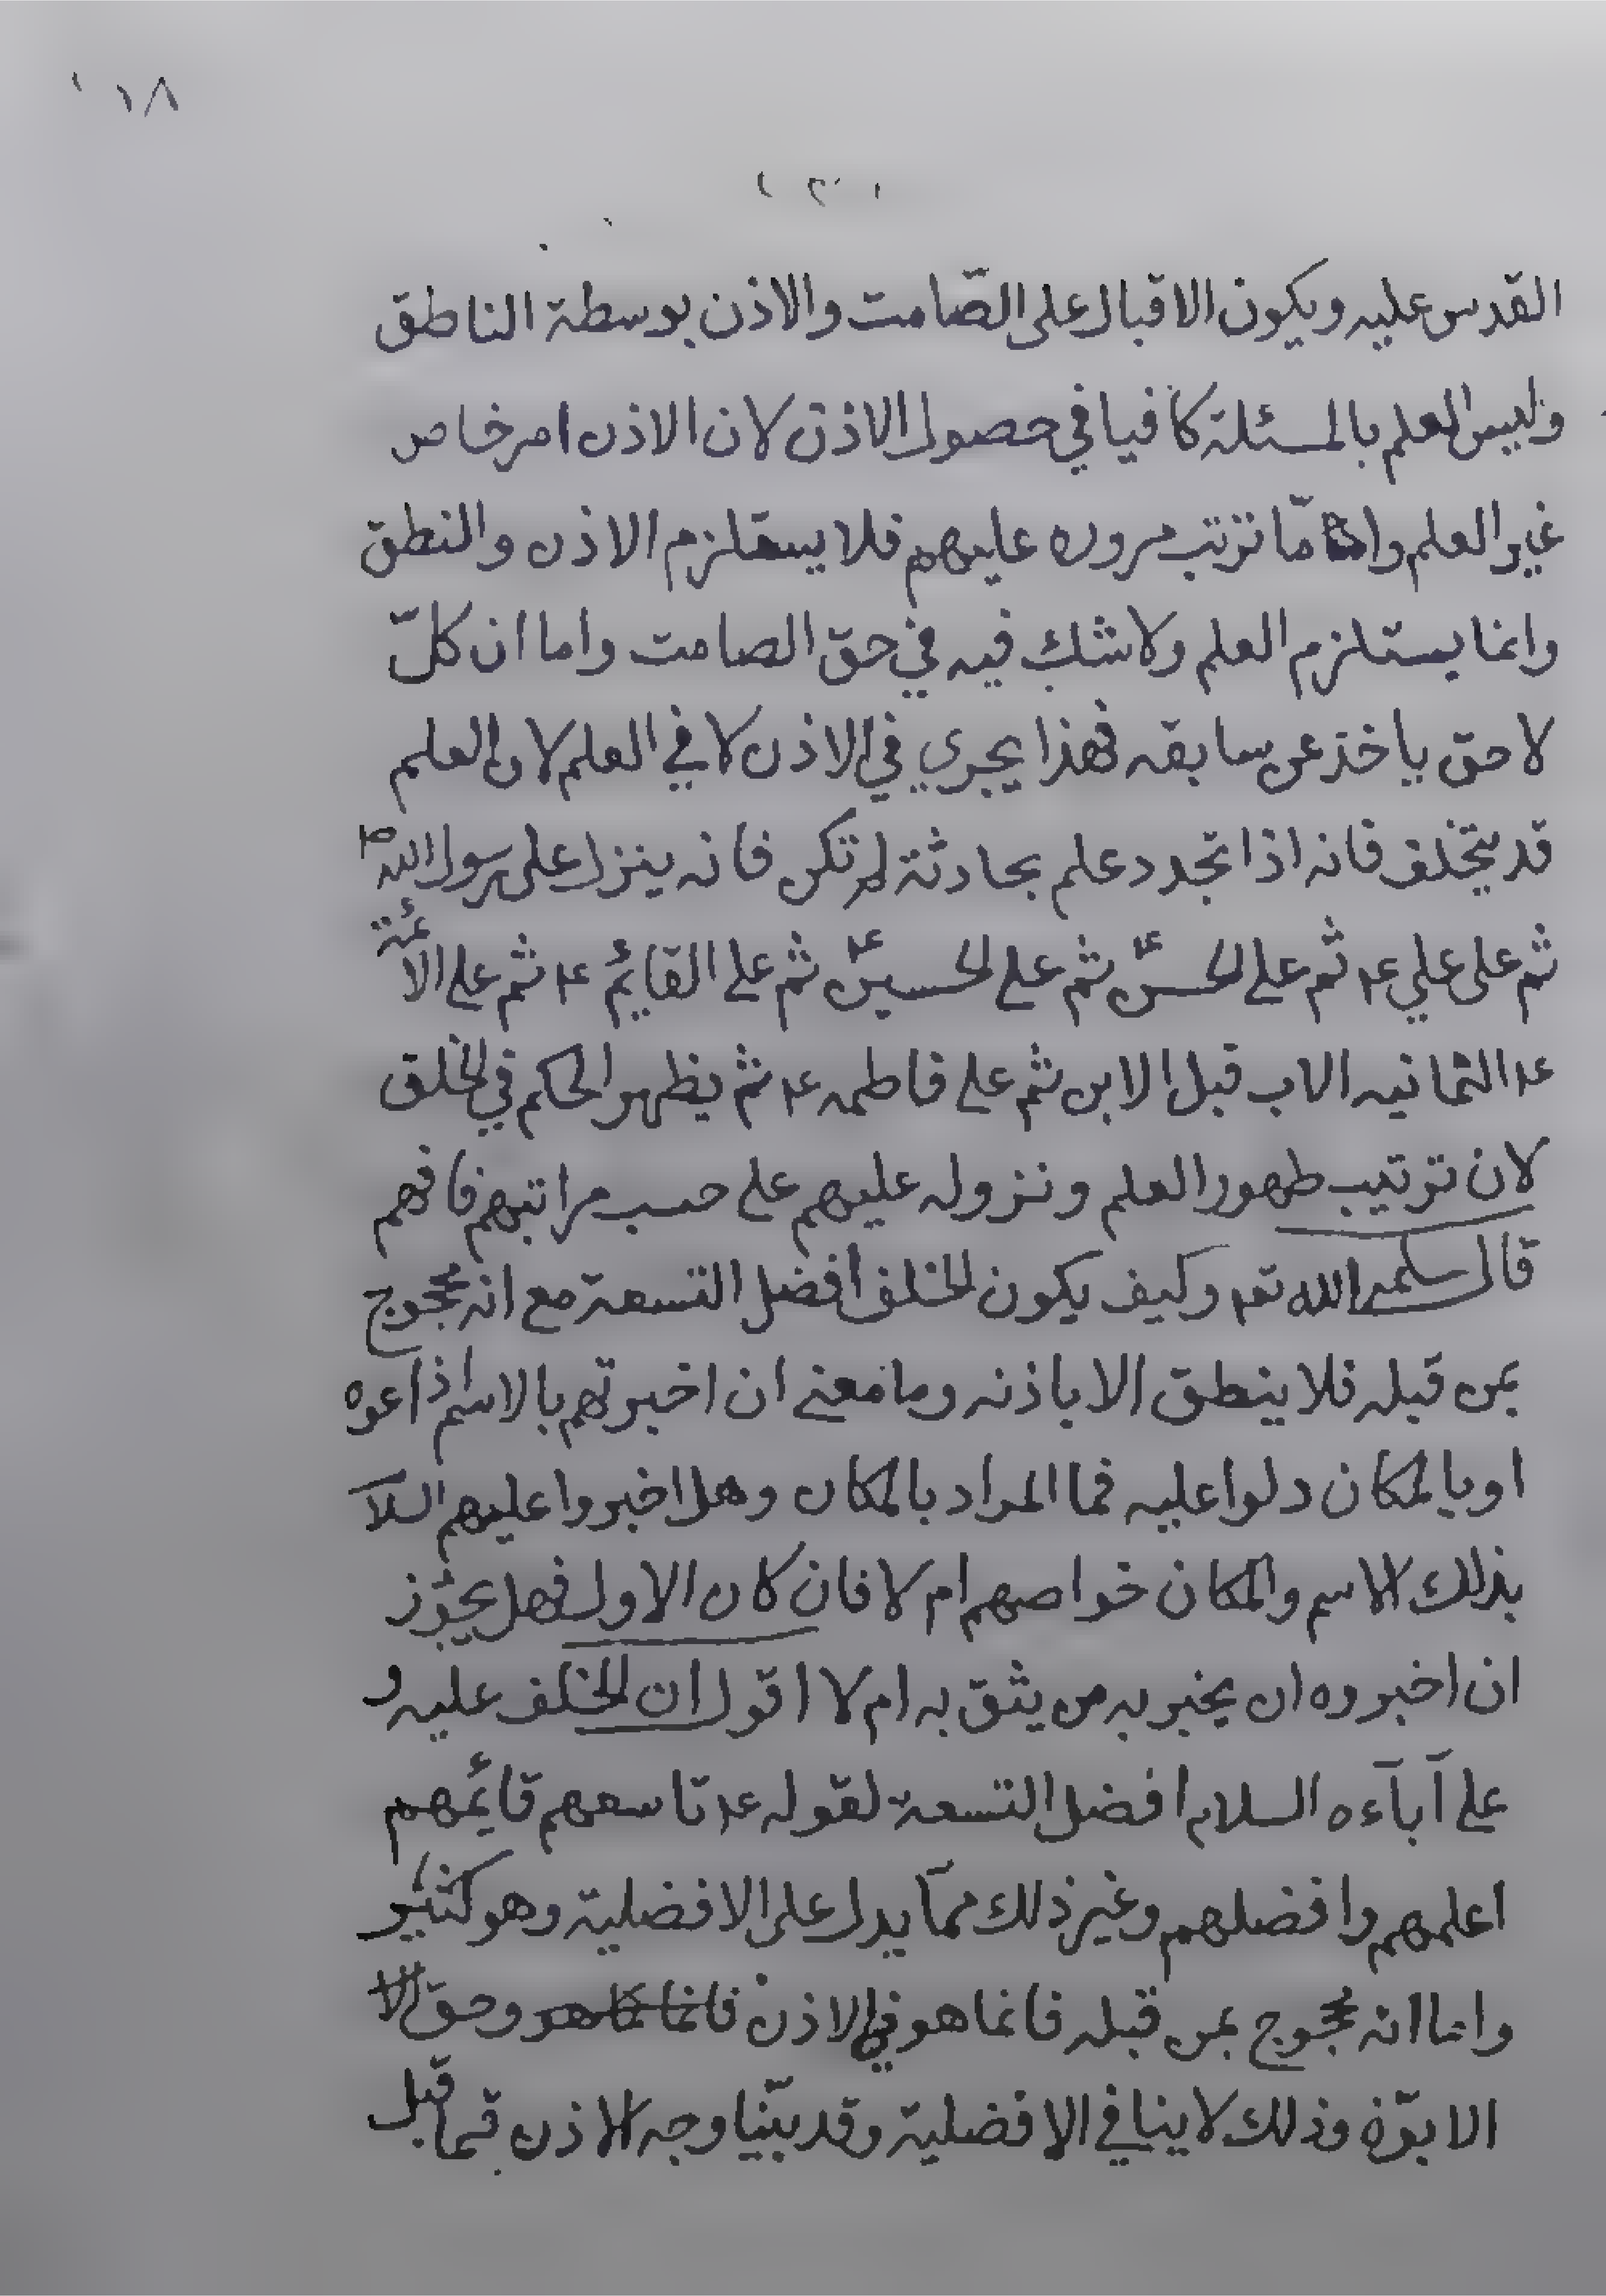 ١٨
القدس عليه ويكون الاقبال على الصّامت والاذن بوسطة الناطق
وليس العلم بالمسئلة كافيا في حصول الاذن لان الاذن امر خاص
غير العلم وامّا ترتب مروره عليهم فلا يستلزم الاذن والنطق
وانما يستلزم العلم ولا شك فيه في حق الصامت واما ان كلّ
لاحق ياخذ عن سابقه فهذا يجري في الاذن لا في العلم لان العلم
قد يتخلف فانه اذا تجدد علم بحادثة لم تكن فانه ينزل على رسول الله ص
ثم على علي ع ثم على الحسن ع ثم على الحسين ع ثم على القايم ع ثم على الائمة
ع الثمانيه الاب قبل الابن ثم على فاطمه ع ثم يظهر الحكم في الخلق
لان ترتيب ظهور العلم ونزوله عليهم على حسب مراتبهم فافهم
قال سلمه الله تع وكيف يكون الخلف افضل التسعة مع انه محجوج
بمن قبله فلا ينطق الا باذنه وما معنى ان اخبرتهم بالاسم اذاعوه
او بالمكان دلوا عليه فما المراد بالمكان وهل اخبروا عليهم السلا
بذلك الاسم والمكان خواصهم ام لا فان كان الاول فهل يجوز
ان اخبروه ان يخبر به من يثق به ام لا اقول ان الخلف عليه و
على آبآءه السلام افضل التسعة لقوله ع تاسعهم قائمهم
اعلمهم وافضلهم وغير ذلك ممّا يدل على الافضلية وهو كثير
واما انه محجوج بمن قبله فانما هو في الاذن فانما هو وحق الا
الابوّة وذلك لا ينافي الافضلية وقد بيّنا وجه الاذن فيما قبل